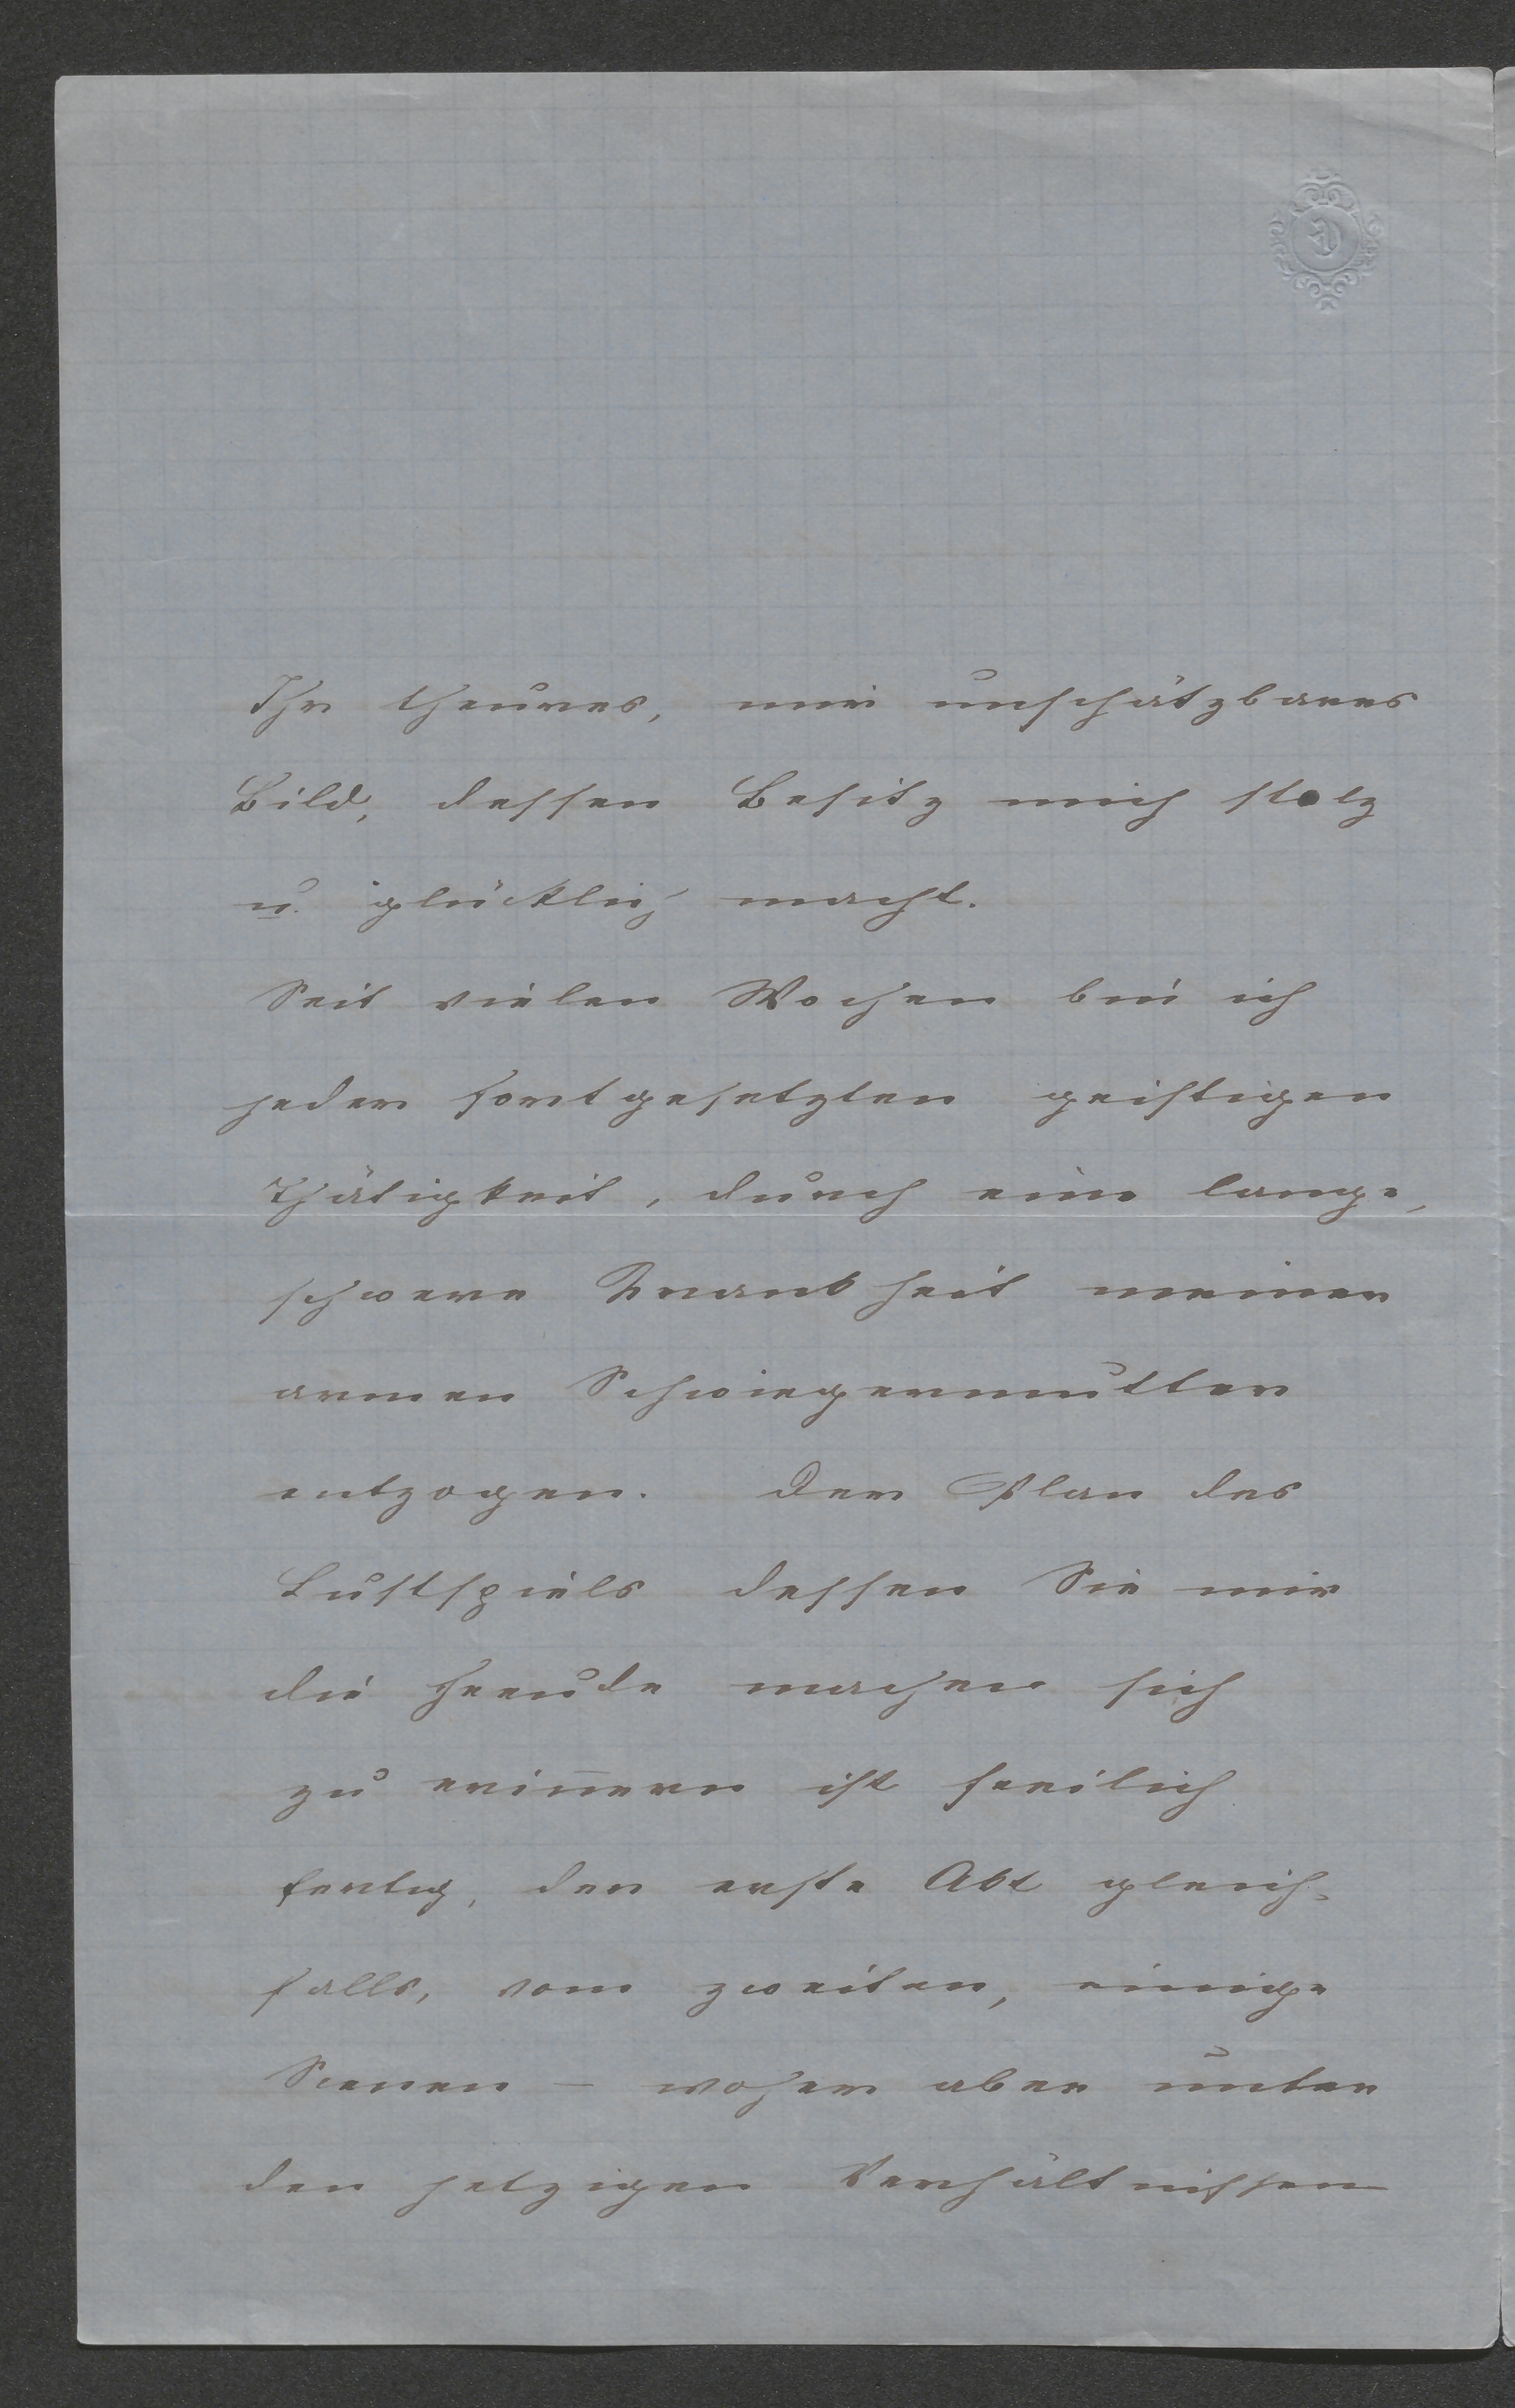 Ihr theures, mir unschätzbares
Bild, dessen Besitz mich stolz
u. glücklich macht.
Seit vielen Wochen bin ich
jeder fortgesetzten geistigen
Thätigkeit, durch eine lange,
schwere Krankheit meiner
armen Schwiegermutter
entzogen. Der Plan des
Lustspiels dessen Sie mir
die Freude machen sich
zu erinnern ist freilich
fertig, der erste Akt gleich-
falls, vom zweiten, einige
Scenen – woher aber unter
den jetzigen Verhältnissen